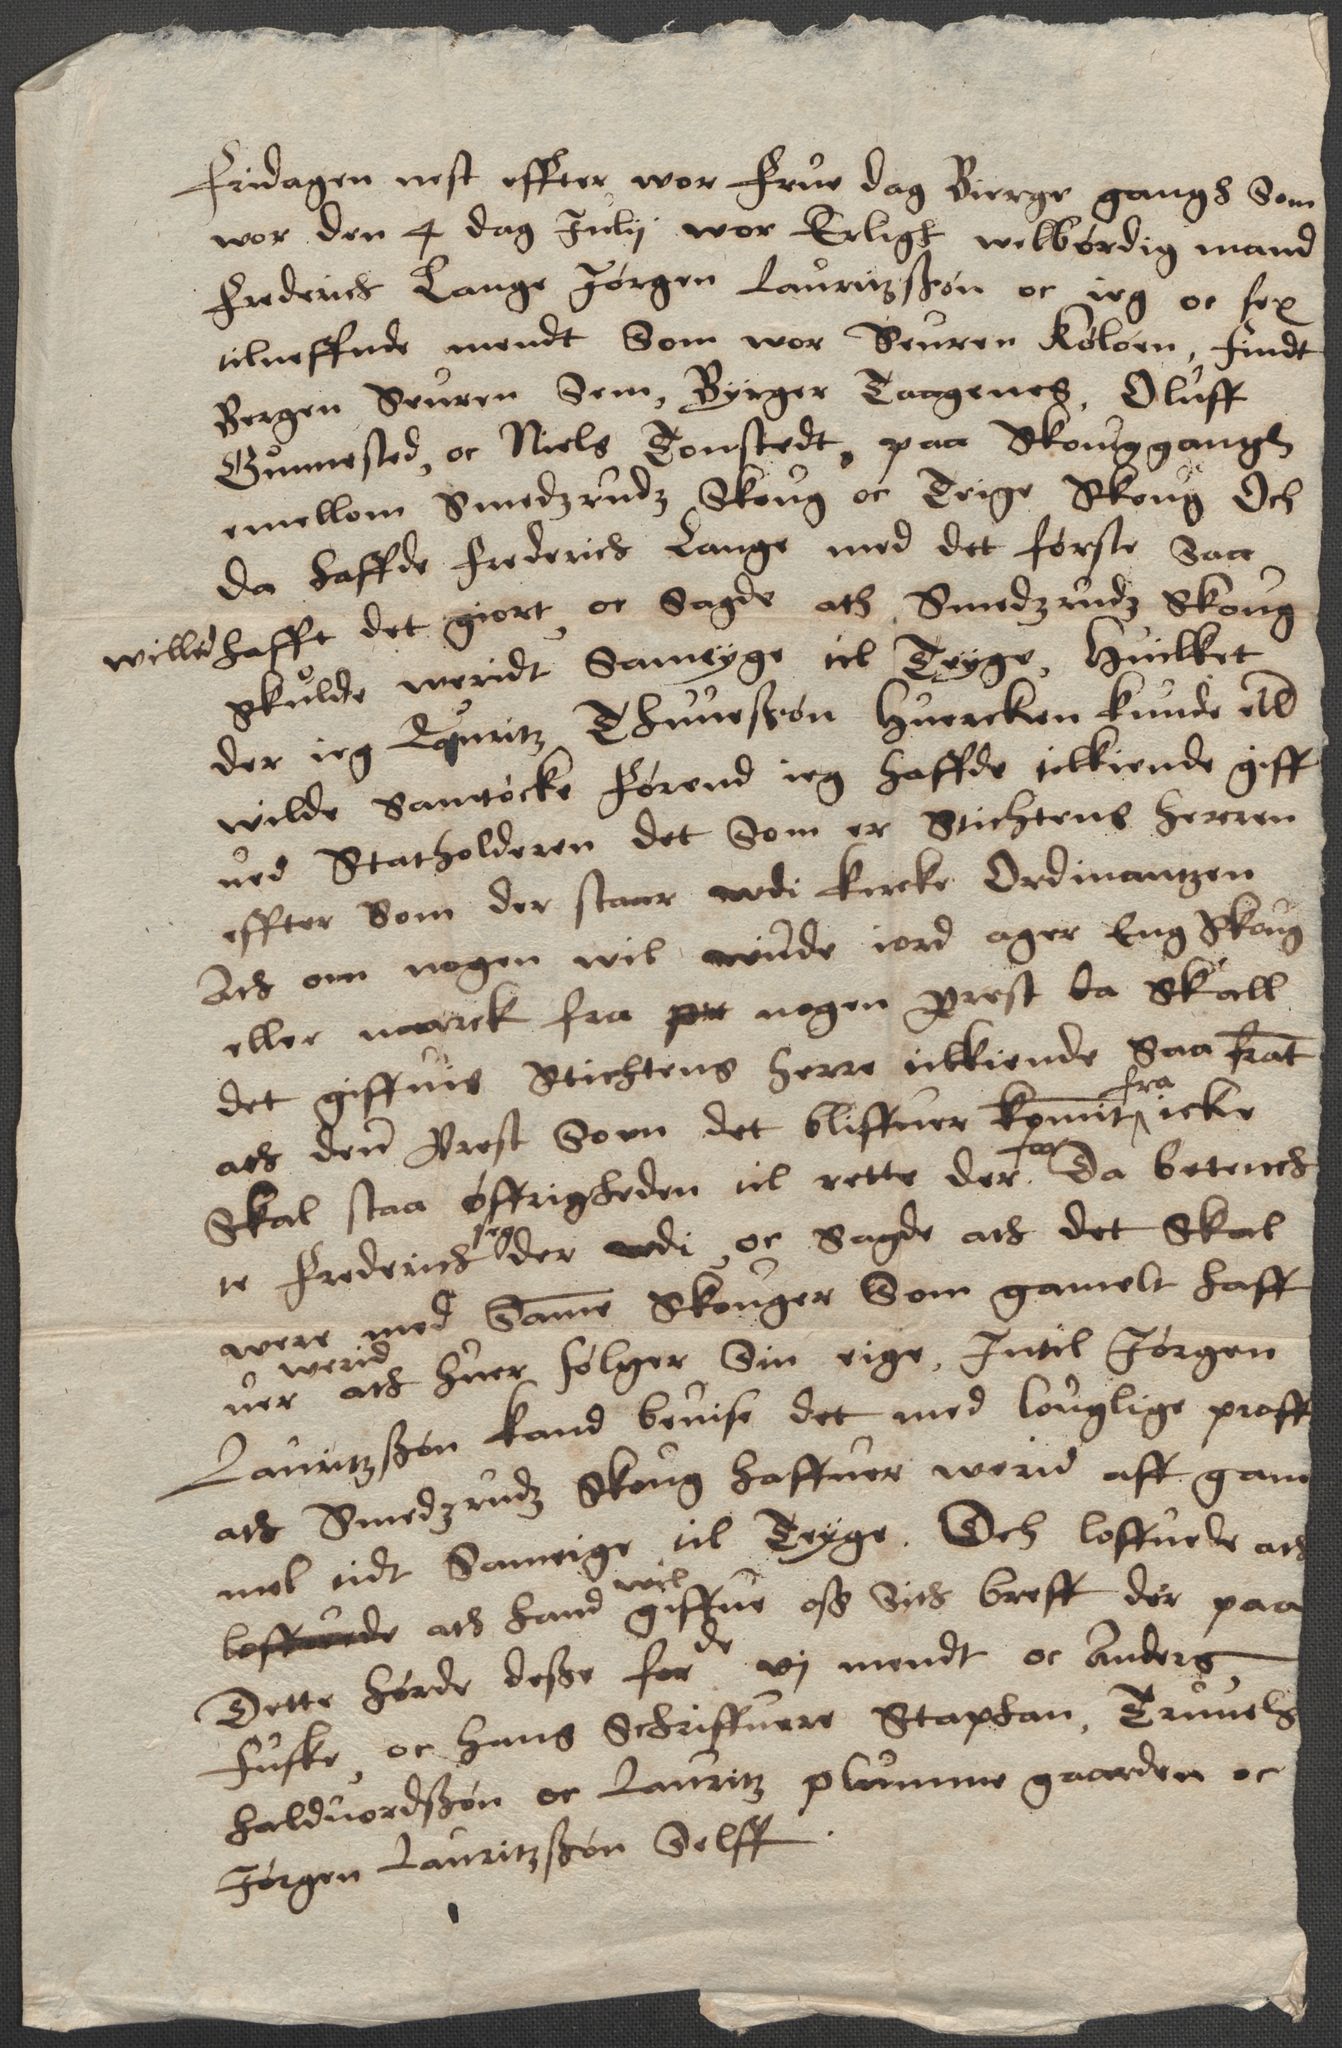 Fridagen nest effter wor Frue dag Bierge gangs Som
wor den 4 dag Julij wor Erligh welbørdig mand
Frederich Lange Jørgen Lauritzssøn oc ieg oc sex
tilneffnde mendt Som wor Seuren Køløen, Findt
Bergen Seuren Sem, Byrger Taagenes, Oluff
Gunnested, oc Niels Tonstedt, paa Skouggangh
emellom Smedzrudz Skoug oc Teige Skoug Och
da haffde Frederich Lange med det første Saa
willed hafft det giort, oc Sagde ath Smedzrudz Skoug
Skulde weridt Sameyge til Teyge, Huilket
der ieg Lauritz Thuuessøn Huercken kunde eld
wilde Samtøcke Førend ieg haffde tilkiende giff
ued Statholderen det Som er Stichtens Herren
effter Som der staar wdi kircke Ordinantzen
Ath om nogen wil winde iord ager Eng Skoug
eller marck fra nogen Prest da Skall
det giffuis Stichtens Herre tilkiende Saa frat
ath den Prest Som det bliffuer komit fra icke
Skal staa øffrigheden til rette der for Da betench
te Frederich seg der wdi, oc Sagde ath det Skal
were med Same Skouger Som gamelt haff
uer werid ath huer følger Sin eige, Intil Jørgen
Lauritzssøn kand beuise det med louglige proff
ath Smedzrudz Skoug haffuer werid aff gam
mel tidt Sameige til Teyge. Och loffuede ath
loffuede ath hand wil giffue oss Sith breff der paa
Dette hørde desse forde vj mendt oc Anders
Fuske, oc Hans Schriffuere Staphan, Truuels
Halduordssøn oc Lauritz plumme gaarden oc
Jørgen Lauritzssøn Selff.